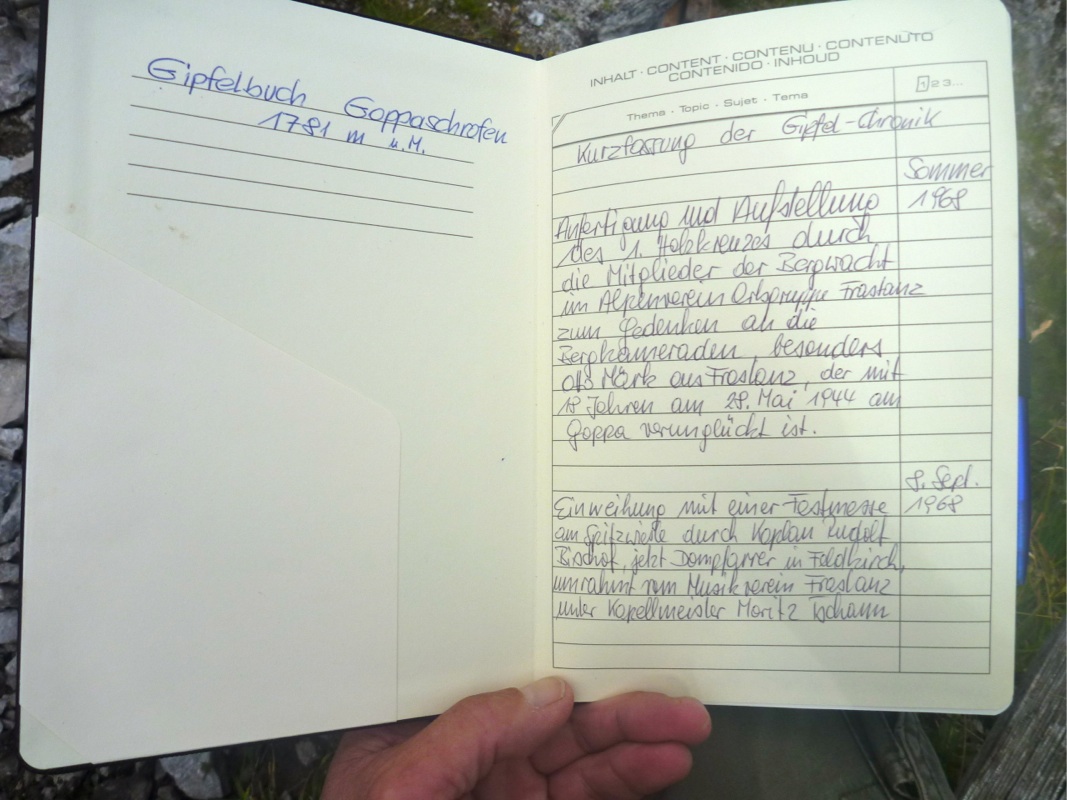 Gipfelbuch Goppaschrofen
1781 m ü.M.
INHALT · CONTENT · CONTENU · CONTENUTO
CONTENIDO · INHOUD
Thema · Topic · Sujet · Tema
1 2 3...
Kurzfassung der Gipfel-Chronik
Sommer
Anfertigung und Aufstellung 1968
des 1. Holzkreuzes durch
die Mitglieder der Bergwacht
im Alpenverein Ortsgruppe Frastanz
zum Gedenken an die
Bergkameraden, besonders
Otto Märk aus Frastanz, der mit
18 Jahren am 28. Mai 1944 am
Goppa verunglückt ist.
8. Sept.
Einweihung mit einer Festmesse 1968
am Spitzwiesle durch Kaplan Rudolf
Bischof, jetzt Dompfarrer in Feldkirch,
umrahmt vom Musikverein Frastanz
unter Kapellmeister Moritz Tschann